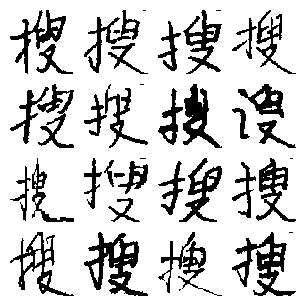 搜搜搜搜
搜搜搜谩
搜搜搜搜
搜搜搜搜